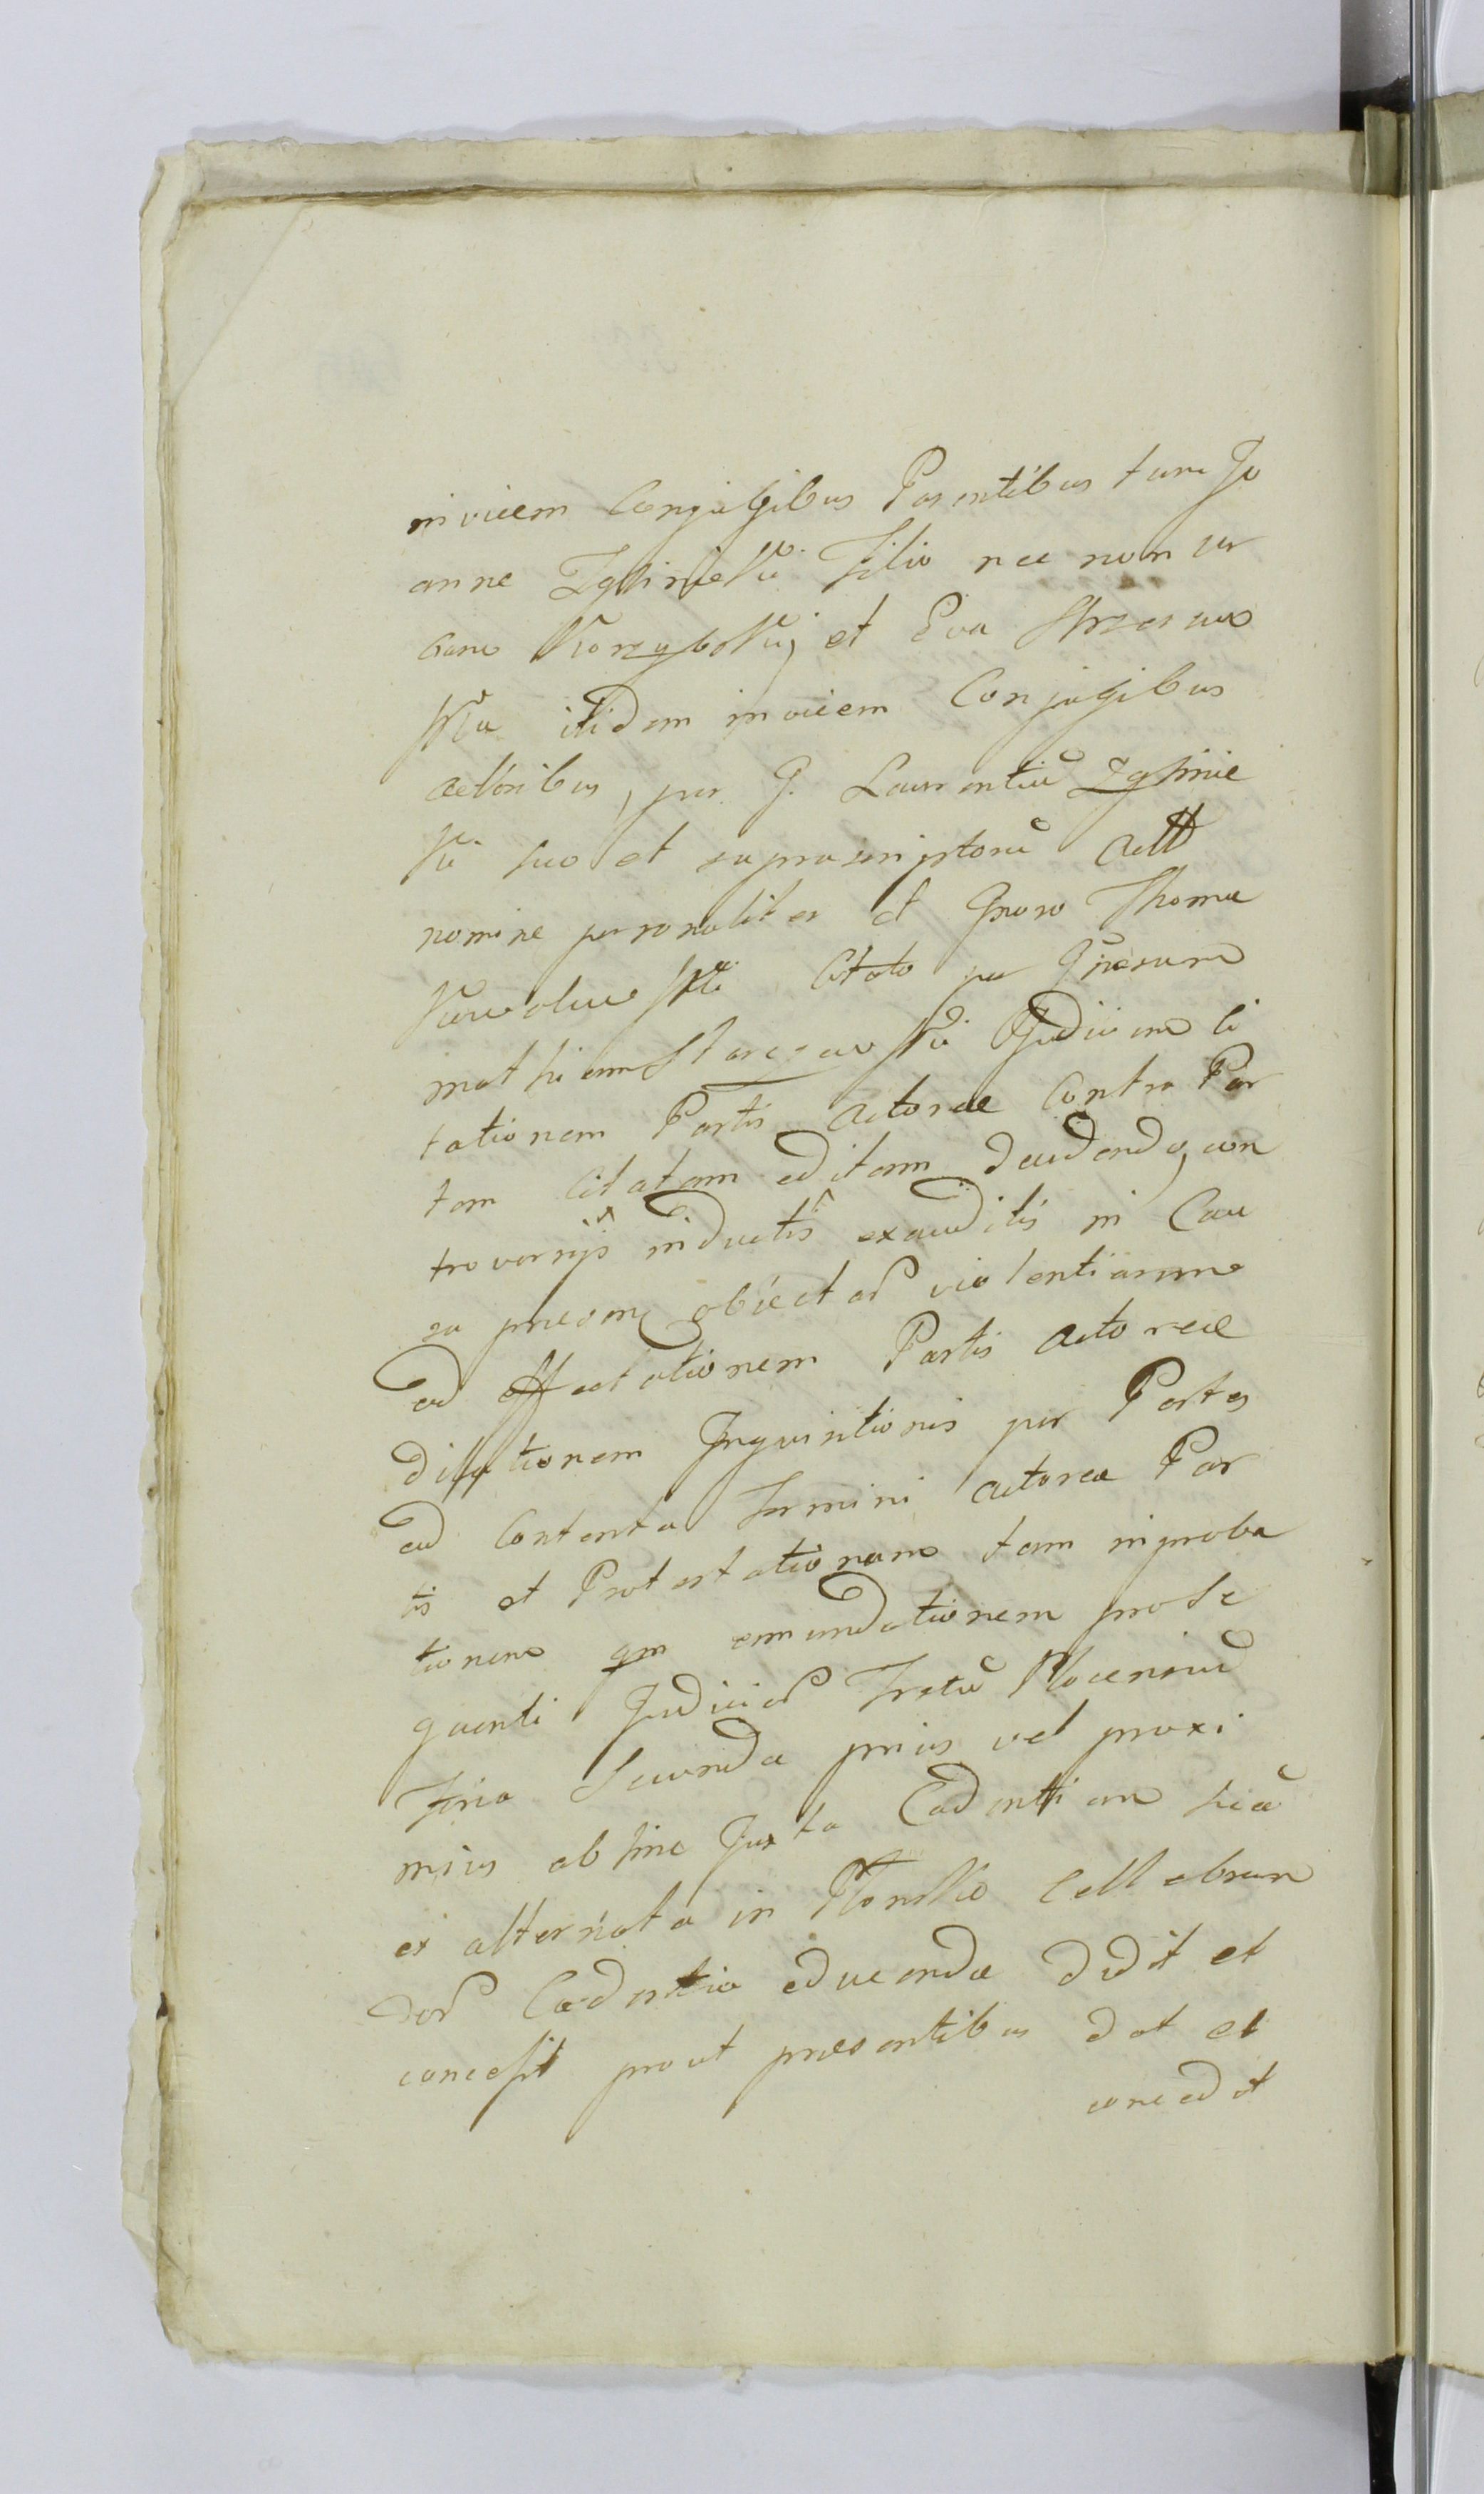 invicem Conjugibus Parentibus tum Jo
anne Zglinicki Filio nec non
et Eva
itidem invicem Conjugibus
actoribus, per G. Laurentiũ Zglinic
ki suo et suprascriptorũ Actt
nomine personaliter et Gnoso Thoma
Citato per Gnosum
mathiam Judicium Ci
tationem Partis Actoreae Contra Par
tem Citatam editam decidendo, con
troversijs inductis exauditis in Cau
sa obiectar violentiarum
ad affectationem Partis Actoreae
dilationem Inquisitionis per Partes
ad Contenta Termini Actoreae Par
tis et Protestationum tam improba
tionem qm emundationem pro Se
quenti Judicior Trstũ Plocensiũ
Feria Secunda prius vel proxi
mius ab hinc Juxta Cadentiam
ex alternata in Plonsko Cellebran
dor Cadentia educenda dedit et
concessit prout praesentibus dat et
concedit